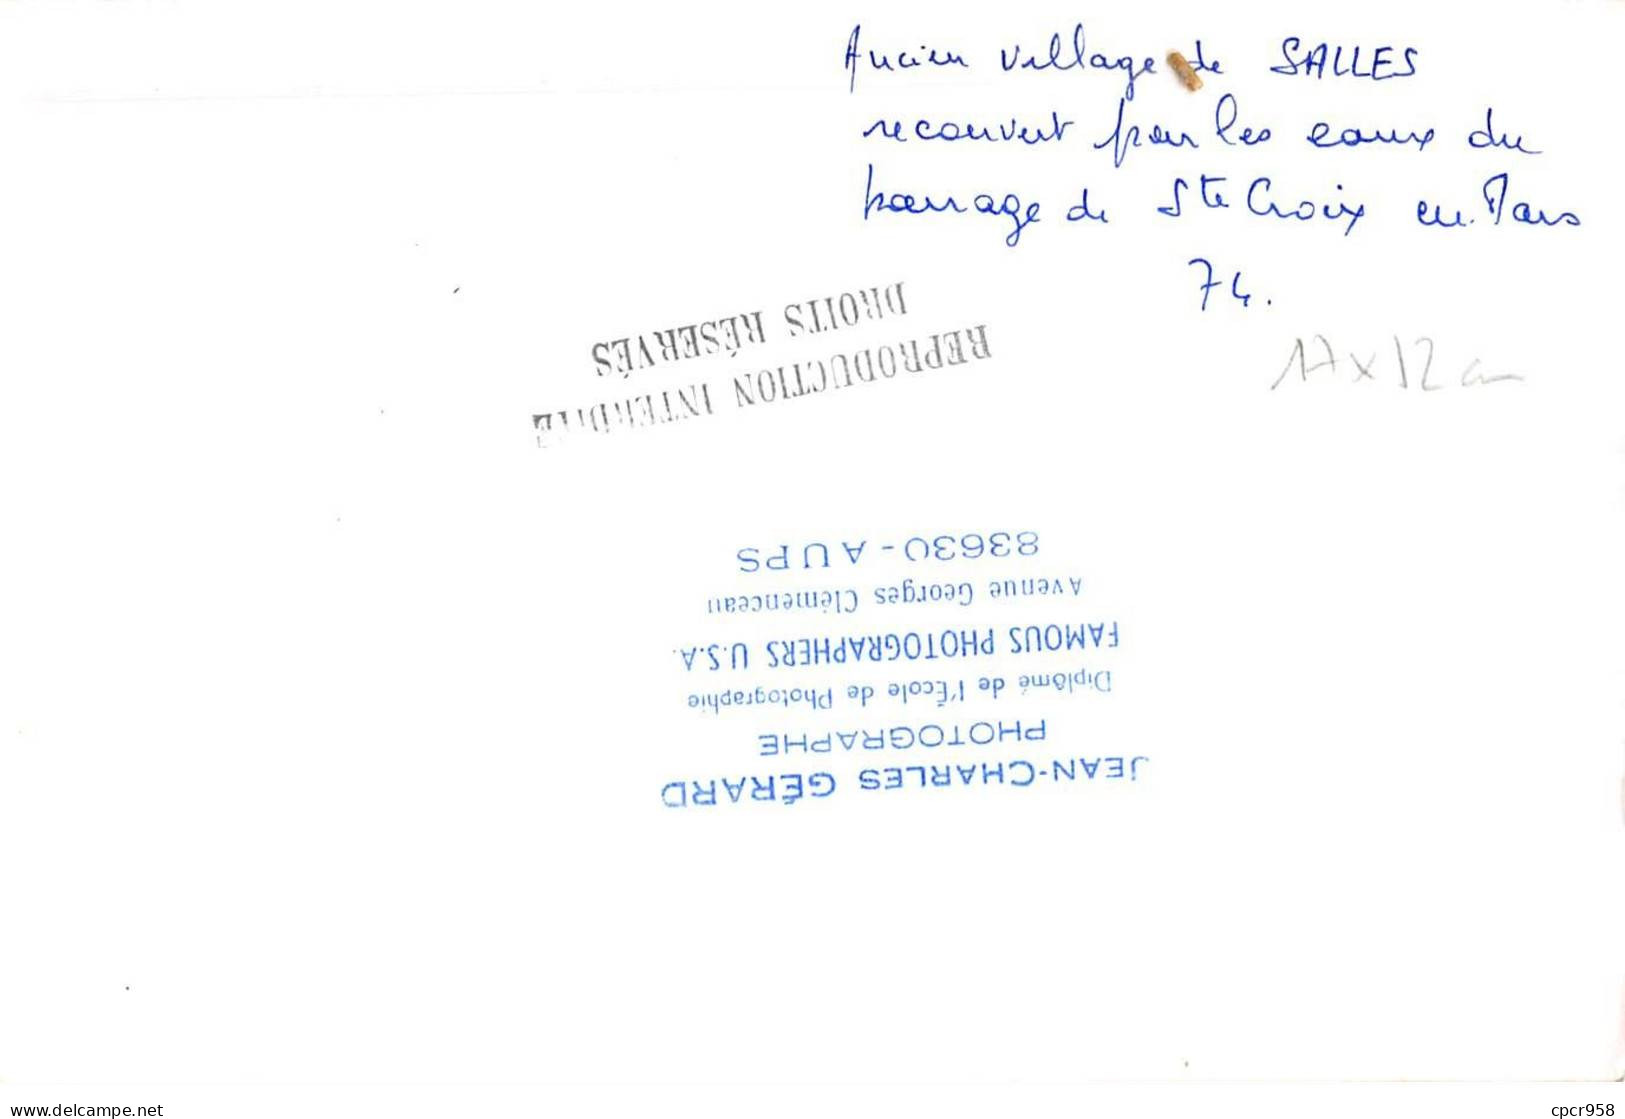 Ancien village de SALLES
recouvert par les eaux du
barrage de Ste Croix en Mars
74.
17 x 12 cm
REPRODUCTION INTERDITE
DROITS RÉSERVÉS
JEAN-CHARLES GÉRARD
PHOTOGRAPHE
Diplômé de l'École de Photographie
FAMOUS PHOTOGRAPHERS U.S.A.
Avenue Georges Clémenceau
83630 - AUPS
delcampe.net
cpcr958